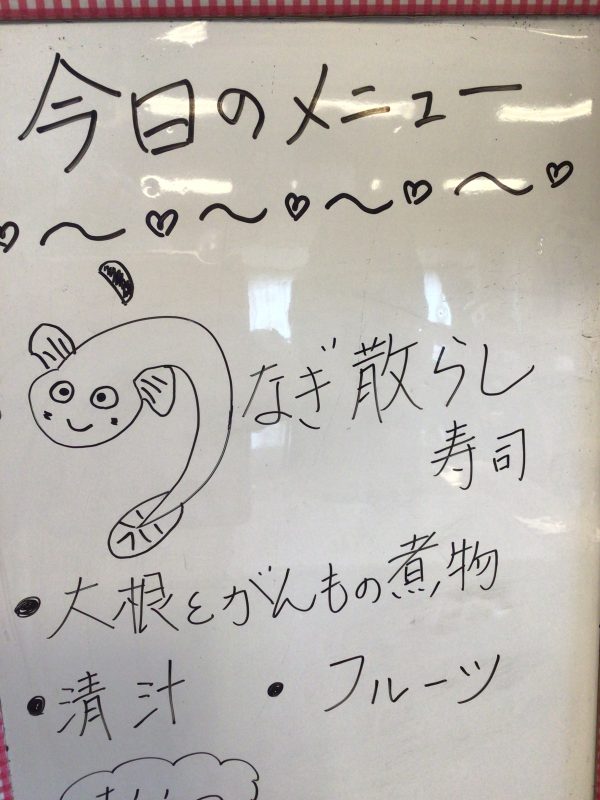 今日のメニュー
うなぎ散らし
寿司
・大根とがんもの煮物
・清汁 ・フルーツ